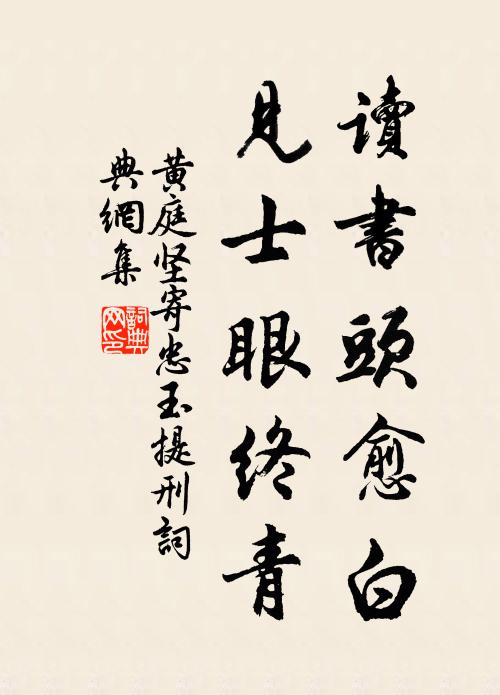 讀書頭愈白
見士眼終青
黄庭坚寄忠玉提刑詞
典網集
詞典網印